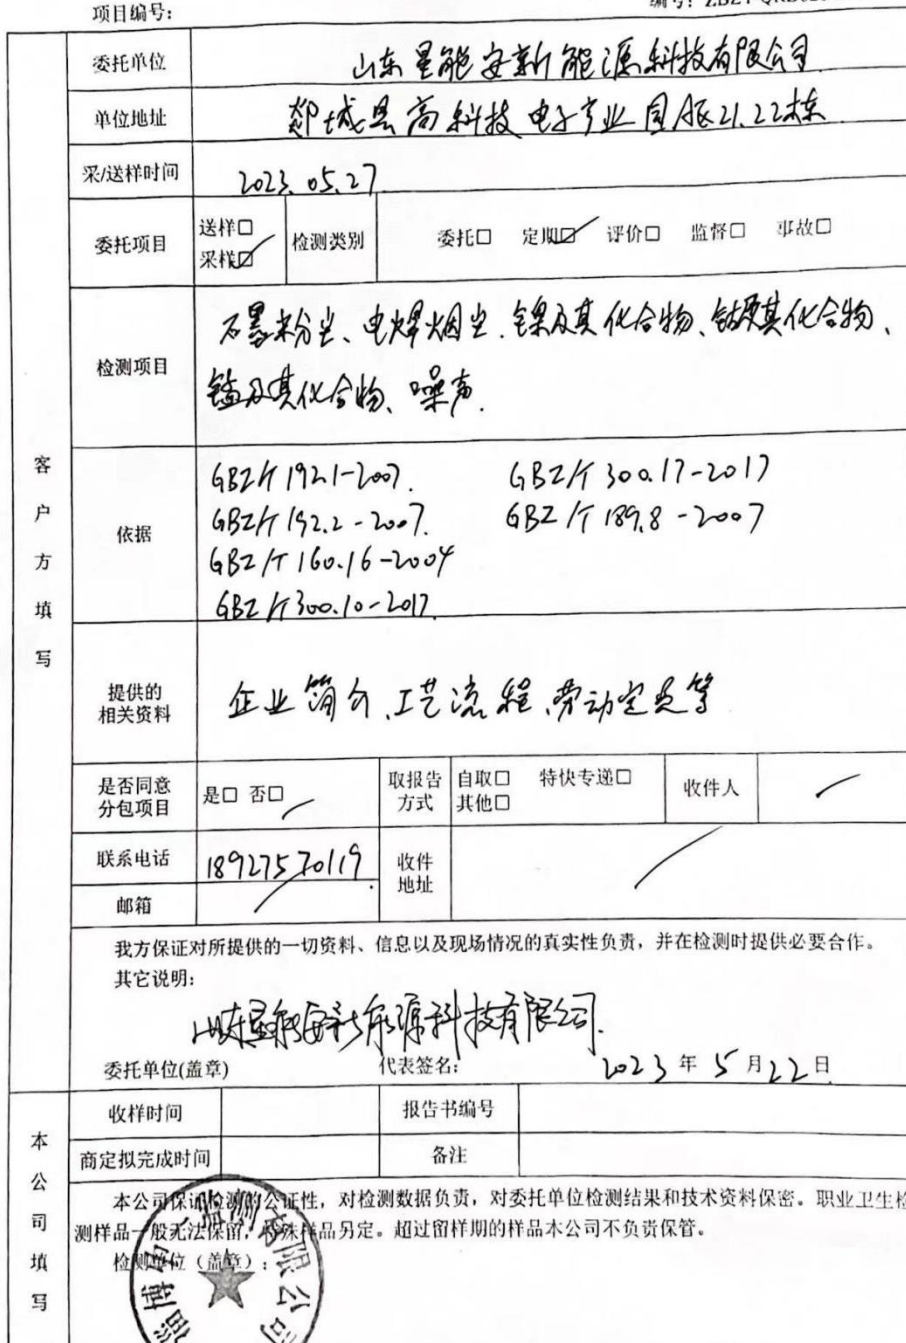 项目编号:
委托单位 山东星能安新能源科技有限公司
单位地址 郯城县高科技电子产业园A区21.22栋
采/送样时间 2023.05.27
委托项目 送样□ 采样☑ 检测类别 委托□ 定期☑ 评价□ 监督□ 事故□
检测项目 石墨粉尘、电焊烟尘、镍及其化合物、钴及其化合物、
锰及其化合物、噪声.
客户方填写
依据 GBZ/T 192.1-2007. GBZ/T 300.17-2017
GBZ/T 192.2-2007. GBZ/T 189.8-2007
GBZ/T 160.16-2004
GBZ/T 300.10-2017
提供的相关资料 企业简介、工艺流程、劳动定员等
是否同意分包项目 是□ 否□ 取报告方式 自取□ 特快专递□ 其他□ 收件人
联系电话 18927570119 收件地址
邮箱
我方保证对所提供的一切资料、信息以及现场情况的真实性负责,并在检测时提供必要合作。
其它说明:
山东星能安新能源科技有限公司.
委托单位(盖章) 代表签名: 2023年5月22日
本公司填写
收样时间 报告书编号
商定拟完成时间 备注
本公司保证检测的公证性,对检测数据负责,对委托单位检测结果和技术资料保密。职业卫生检
测样品一般无法保留,特殊样品另定。超过留样期的样品本公司不负责保管。
检测单位(盖章):